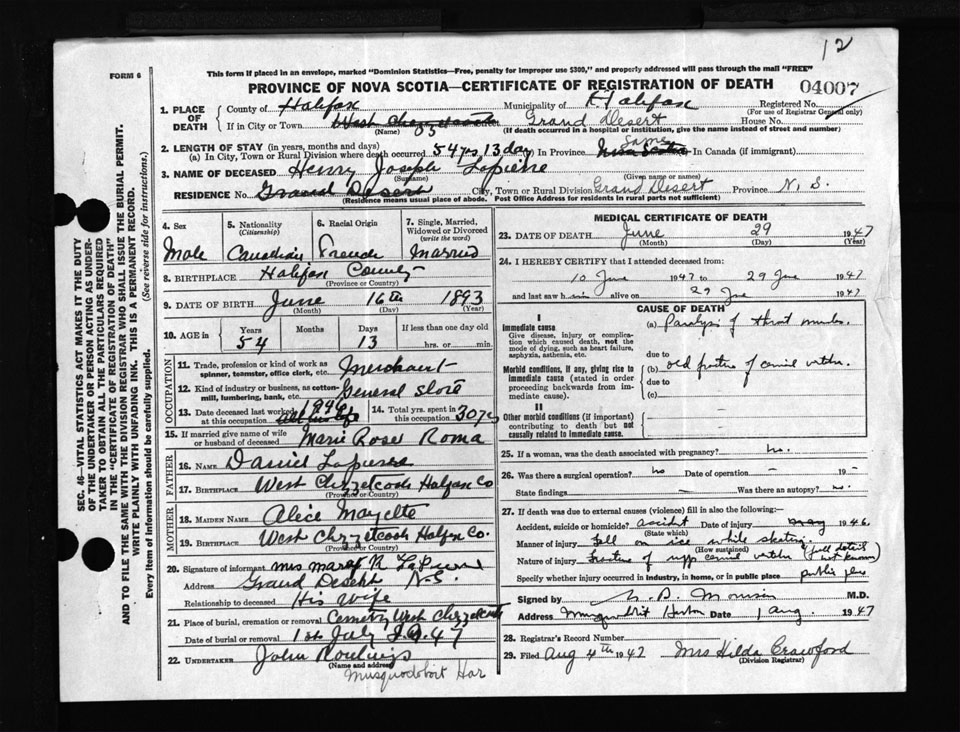 12
FORM 6
This form if placed in an envelope, marked "Dominion Statistics—Free, penalty for improper use $300," and properly addressed will pass through the mail "FREE"
PROVINCE OF NOVA SCOTIA—CERTIFICATE OF REGISTRATION OF DEATH
04007
1. PLACE OF DEATH
County of Halifax Municipality of Halifax Registered No.
(For use of Registrar General only)
If in City or Town West Chezzetcook Grand Desert House No.
(Name) (If death occurred in a hospital or institution, give the name instead of street and number)
2. LENGTH OF STAY (in years, months and days)
(a) In City, Town or Rural Division where death occurred 54 yrs 13 day In Province Same Nova Scotia In Canada (if immigrant)
3. NAME OF DECEASED Henry Joseph Lapierre
(Surname) (Given name or names)
RESIDENCE No. Grand Desert City, Town or Rural Division Grand Desert Province N. S.
(Residence means usual place of abode. Post Office Address for residents in rural parts not sufficient)
SEC. 46—VITAL STATISTICS ACT MAKES IT THE DUTY
OF THE UNDERTAKER OR PERSON ACTING AS UNDER-
TAKER TO OBTAIN ALL THE PARTICULARS REQUIRED
IN THE "CERTIFICATE OF REGISTRATION OF DEATH"
AND TO FILE THE SAME WITH THE DIVISION REGISTRAR WHO SHALL ISSUE THE BURIAL PERMIT.
WRITE PLAINLY WITH UNFADING INK. THIS IS A PERMANENT RECORD.
Every item of information should be carefully supplied. (See reverse side for instructions.)
4. Sex
Male
5. Nationality
(Citizenship)
Canadian
6. Racial Origin
French
7. Single, Married, Widowed or Divorced
(write the word)
Married
8. BIRTHPLACE Halifax County
(Province or Country)
9. DATE OF BIRTH June 16th 1893
(Month) (Day) (Year)
10. AGE in Years Months Days If less than one day old
54 13 hrs. or min.
OCCUPATION
11. Trade, profession or kind of work as spinner, teamster, office clerk, etc. Merchant
12. Kind of industry or business, as cotton-mill, lumbering, bank, etc. General Store
13. Date deceased last worked at this occupation 1946
14. Total yrs. spent in this occupation 30 yrs
15. If married give name of wife or husband of deceased Marie Rose Roma
FATHER
16. NAME Daniel Lapierre
17. BIRTHPLACE West Chezzetcook Halifax Co
(Province or Country)
MOTHER
18. MAIDEN NAME Alice Mayette
19. BIRTHPLACE West Chezzetcook Halifax Co.
(Province or Country)
20. Signature of informant Mrs Mary R LaPierre
Address Grand Desert N-S.
Relationship to deceased His Wife
21. Place of burial, cremation or removal Cemetry West Chezzetcook
Date of burial or removal 1st July 1947
22. UNDERTAKER John
(Name and address)
Musquodoboit Har
MEDICAL CERTIFICATE OF DEATH
23. DATE OF DEATH June 29 1947
(Month) (Day) (Year)
24. I HEREBY CERTIFY that I attended deceased from:
10 June 1947 to 29 June 1947
and last saw him alive on 29 June 1947
CAUSE OF DEATH
I
Immediate cause
Give disease, injury or complication which caused death, not the mode of dying, such as heart failure, asphyxia, asthenia, etc.
(a) Paralysis of throat muscles.
due to
Morbid conditions, if any, giving rise to immediate cause (stated in order proceeding backwards from immediate cause).
(b) old fracture of cervical vertebra.
due to
(c)
II
Other morbid conditions (if important) contributing to death but not causally related to immediate cause.
25. If a woman, was the death associated with pregnancy? no.
26. Was there a surgical operation? no Date of operation - 19 -
State findings — Was there an autopsy? no.
27. If death was due to external causes (violence) fill in also the following:—
Accident, suicide or homicide? accident Date of injury May 1946.
(State which)
Manner of injury Fell on ice while skating.
(How sustained)
Nature of injury Fracture of upp cervical vertebra (full details not known)
Specify whether injury occurred in industry, in home, or in public place public place
Signed by M.D.
Address Musquodoboit Harbour Date 1 Aug. 1947
28. Registrar's Record Number
29. Filed Aug 4th 1947 Mrs Hilda Crawford
(Division Registrar)